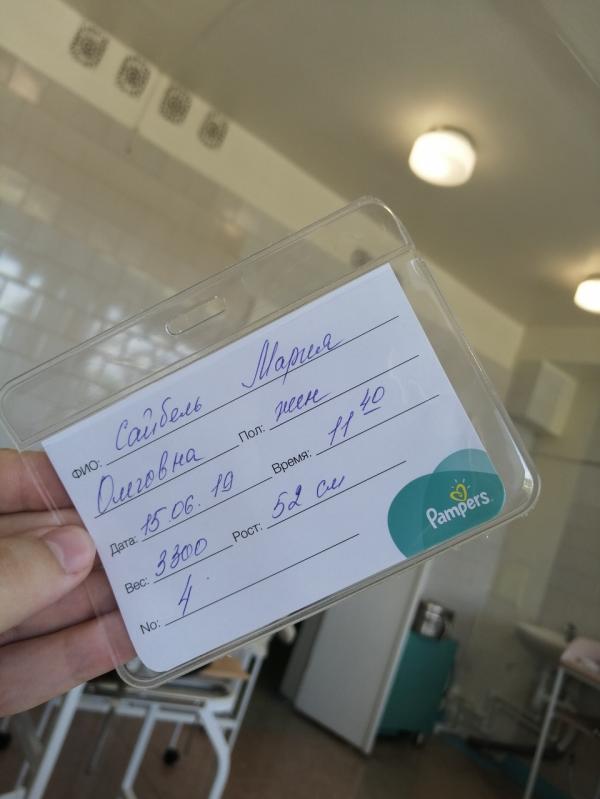 ФИО: Сайбель Мария
Олеговна Пол: жен
Дата: 15.06.19 Время: 11 40
Вес: 3300 Рост: 52 см
No: 4
Pampers